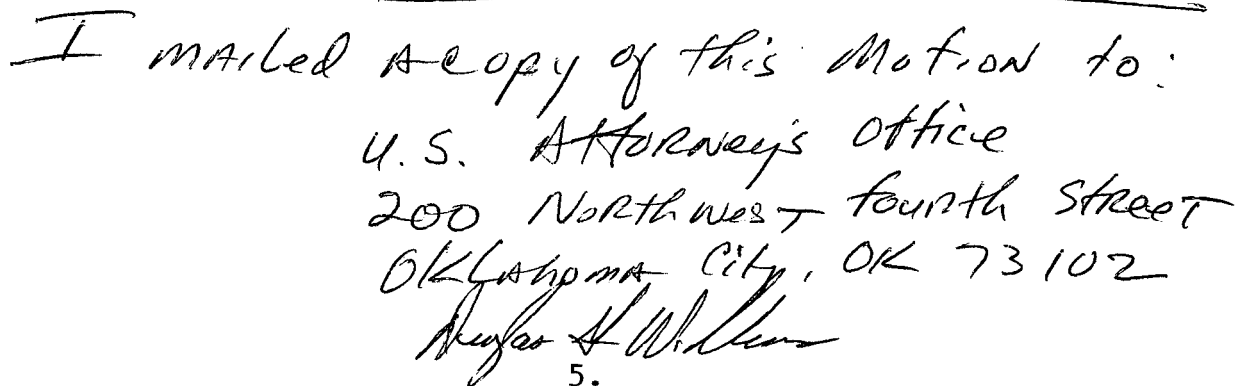 I mailed a copy of this Motion to:
U.S. Attorney's Office
200 Northwest fourth Street
Oklahoma City, OK 73102
Douglas W. Williams
5.